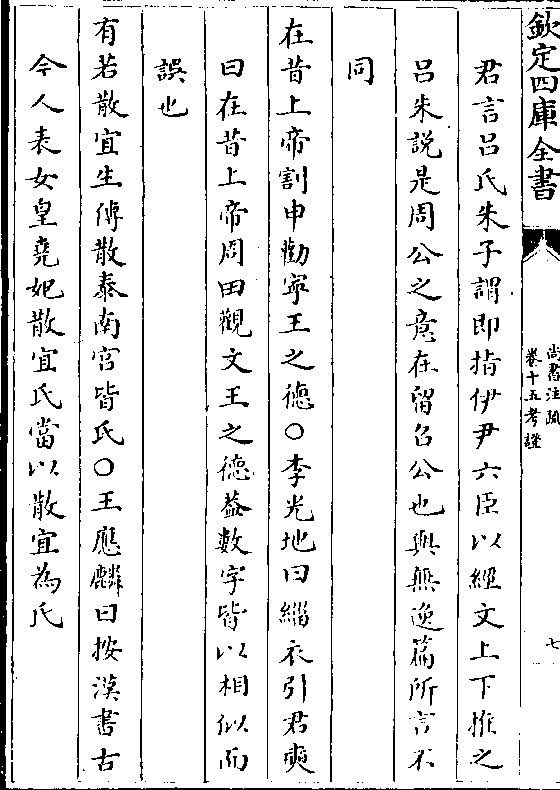 欽定四庫全書
尚書注疏
卷十五考證
七
君言吕氏朱子謂即指伊尹六臣以經文上下推之
吕朱說是周公之意在留召公也與無逸篇所言不
同
在昔上帝割申勸寜王之德○李光地曰緇衣引君奭
曰在昔上帝周田觀文王之德葢數字皆以相似而
誤也
有若散宜生傳散泰南宫皆氏○王應麟曰按漢書古
今人表女皇堯妃散宜氏當以散宜為氏